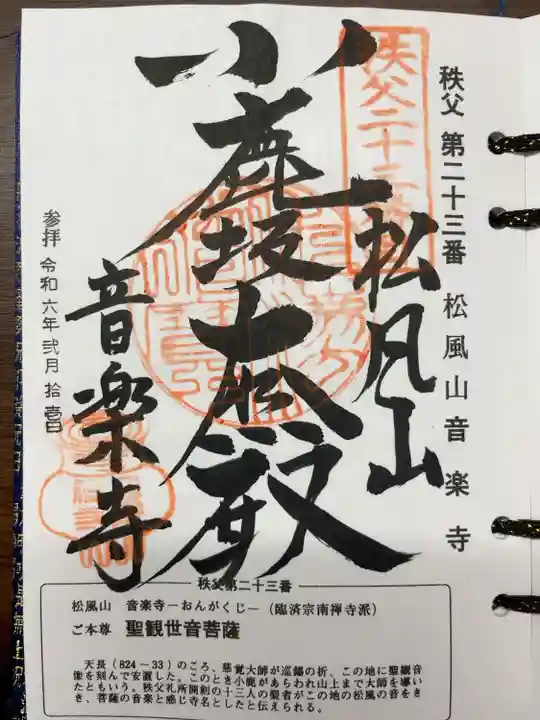 秩父 第二十三番 松風山音楽寺
秩父二十三番
松風山
小鹿坂大悲殿
音楽寺
参拝 令和六年弐月拾壱日
秩父第二十三番
松風山 音楽寺－おんがくじ－（臨済宗南禅寺派）
ご本尊 聖観世音菩薩
天長（824－33）のころ、慈覚大師が巡錫の折、この地に聖観音
像を刻んで安置した。このとき小鹿があらわれ山上まで大師を導い
たともいう。秩父札所開創の十三人の聖者がこの地の松風の音をき
き、菩薩の音楽と感じ寺名としたと伝えられる。